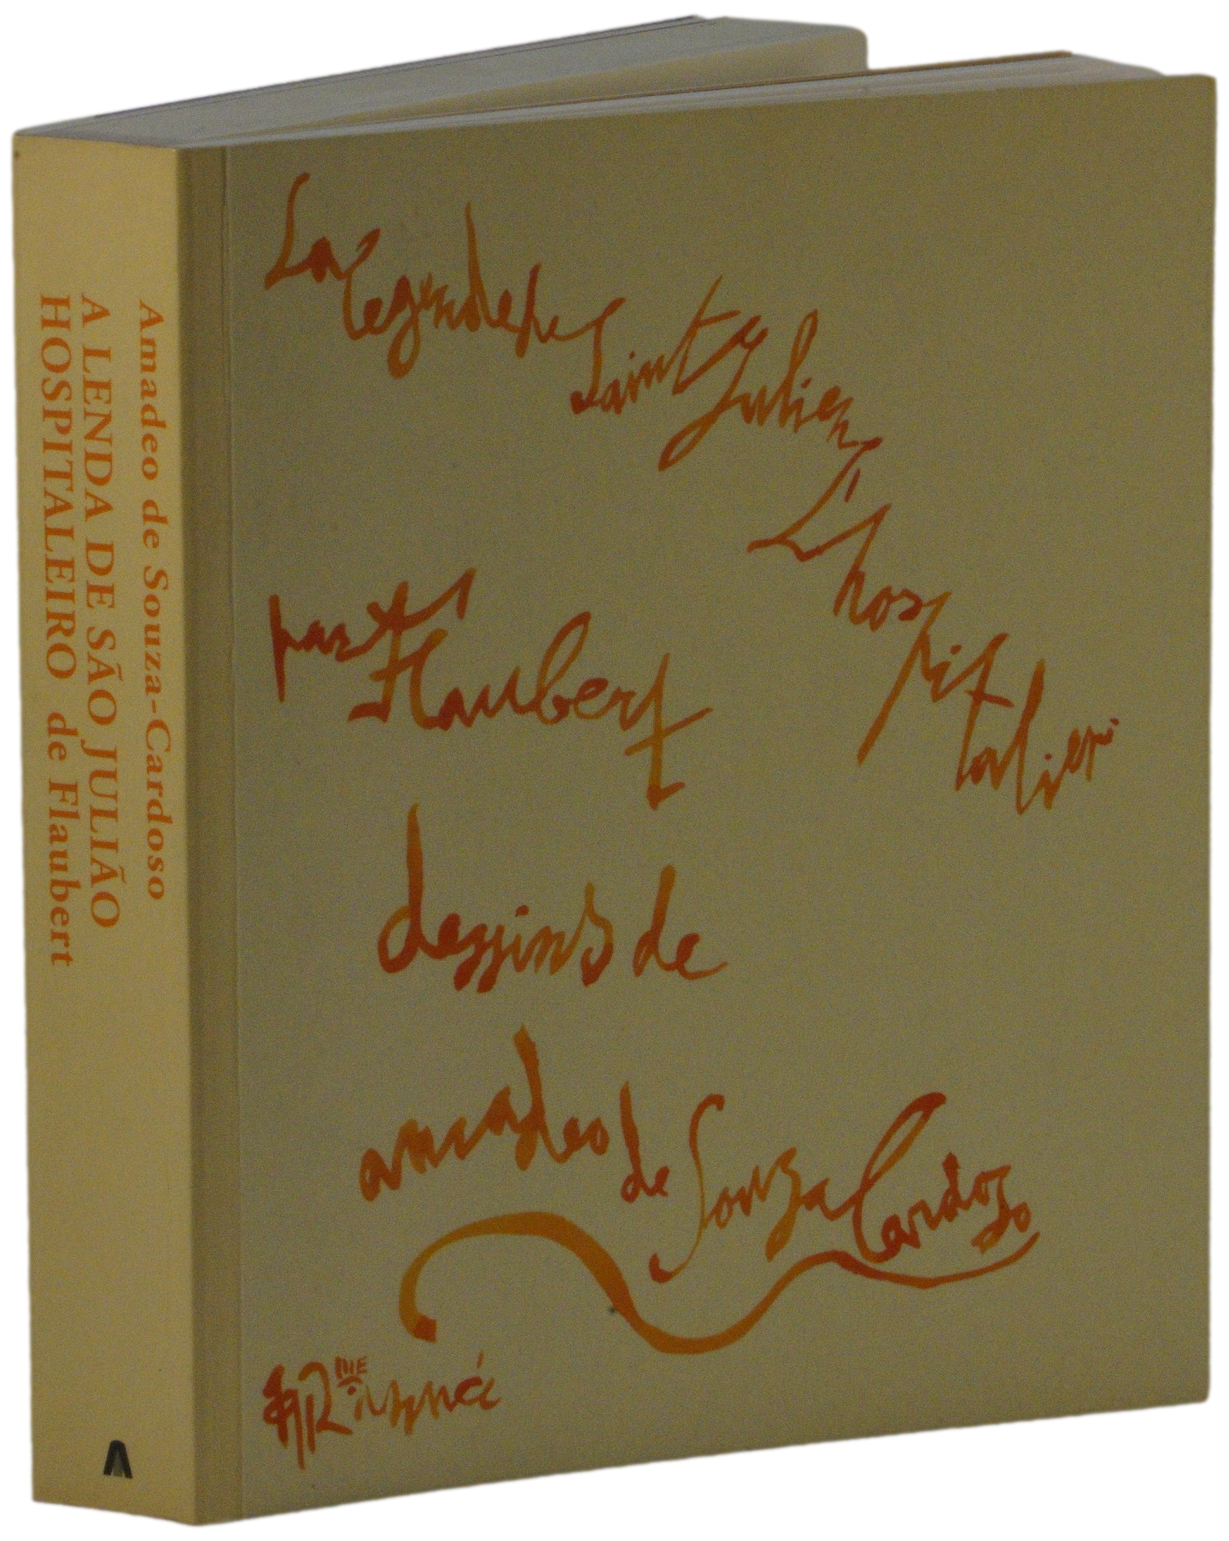 Amadeo de Souza-Cardoso
A LENDA DE SÃO JULIÃO
HOSPITALEIRO de Flaubert
La
legende de
Saint Julien
L'hos
pit
talier
par
Flaubert
dessins de
amadeo de Souza Cardoso